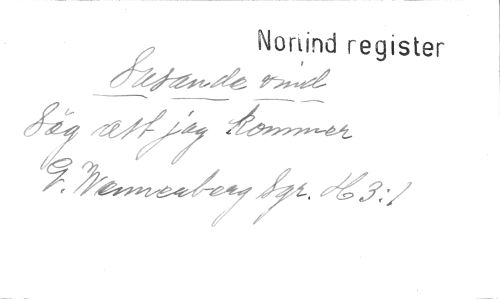 Norlind register
Susande vind
Säg att jag kommer
G. Wennerberg Sgr. H 3:1